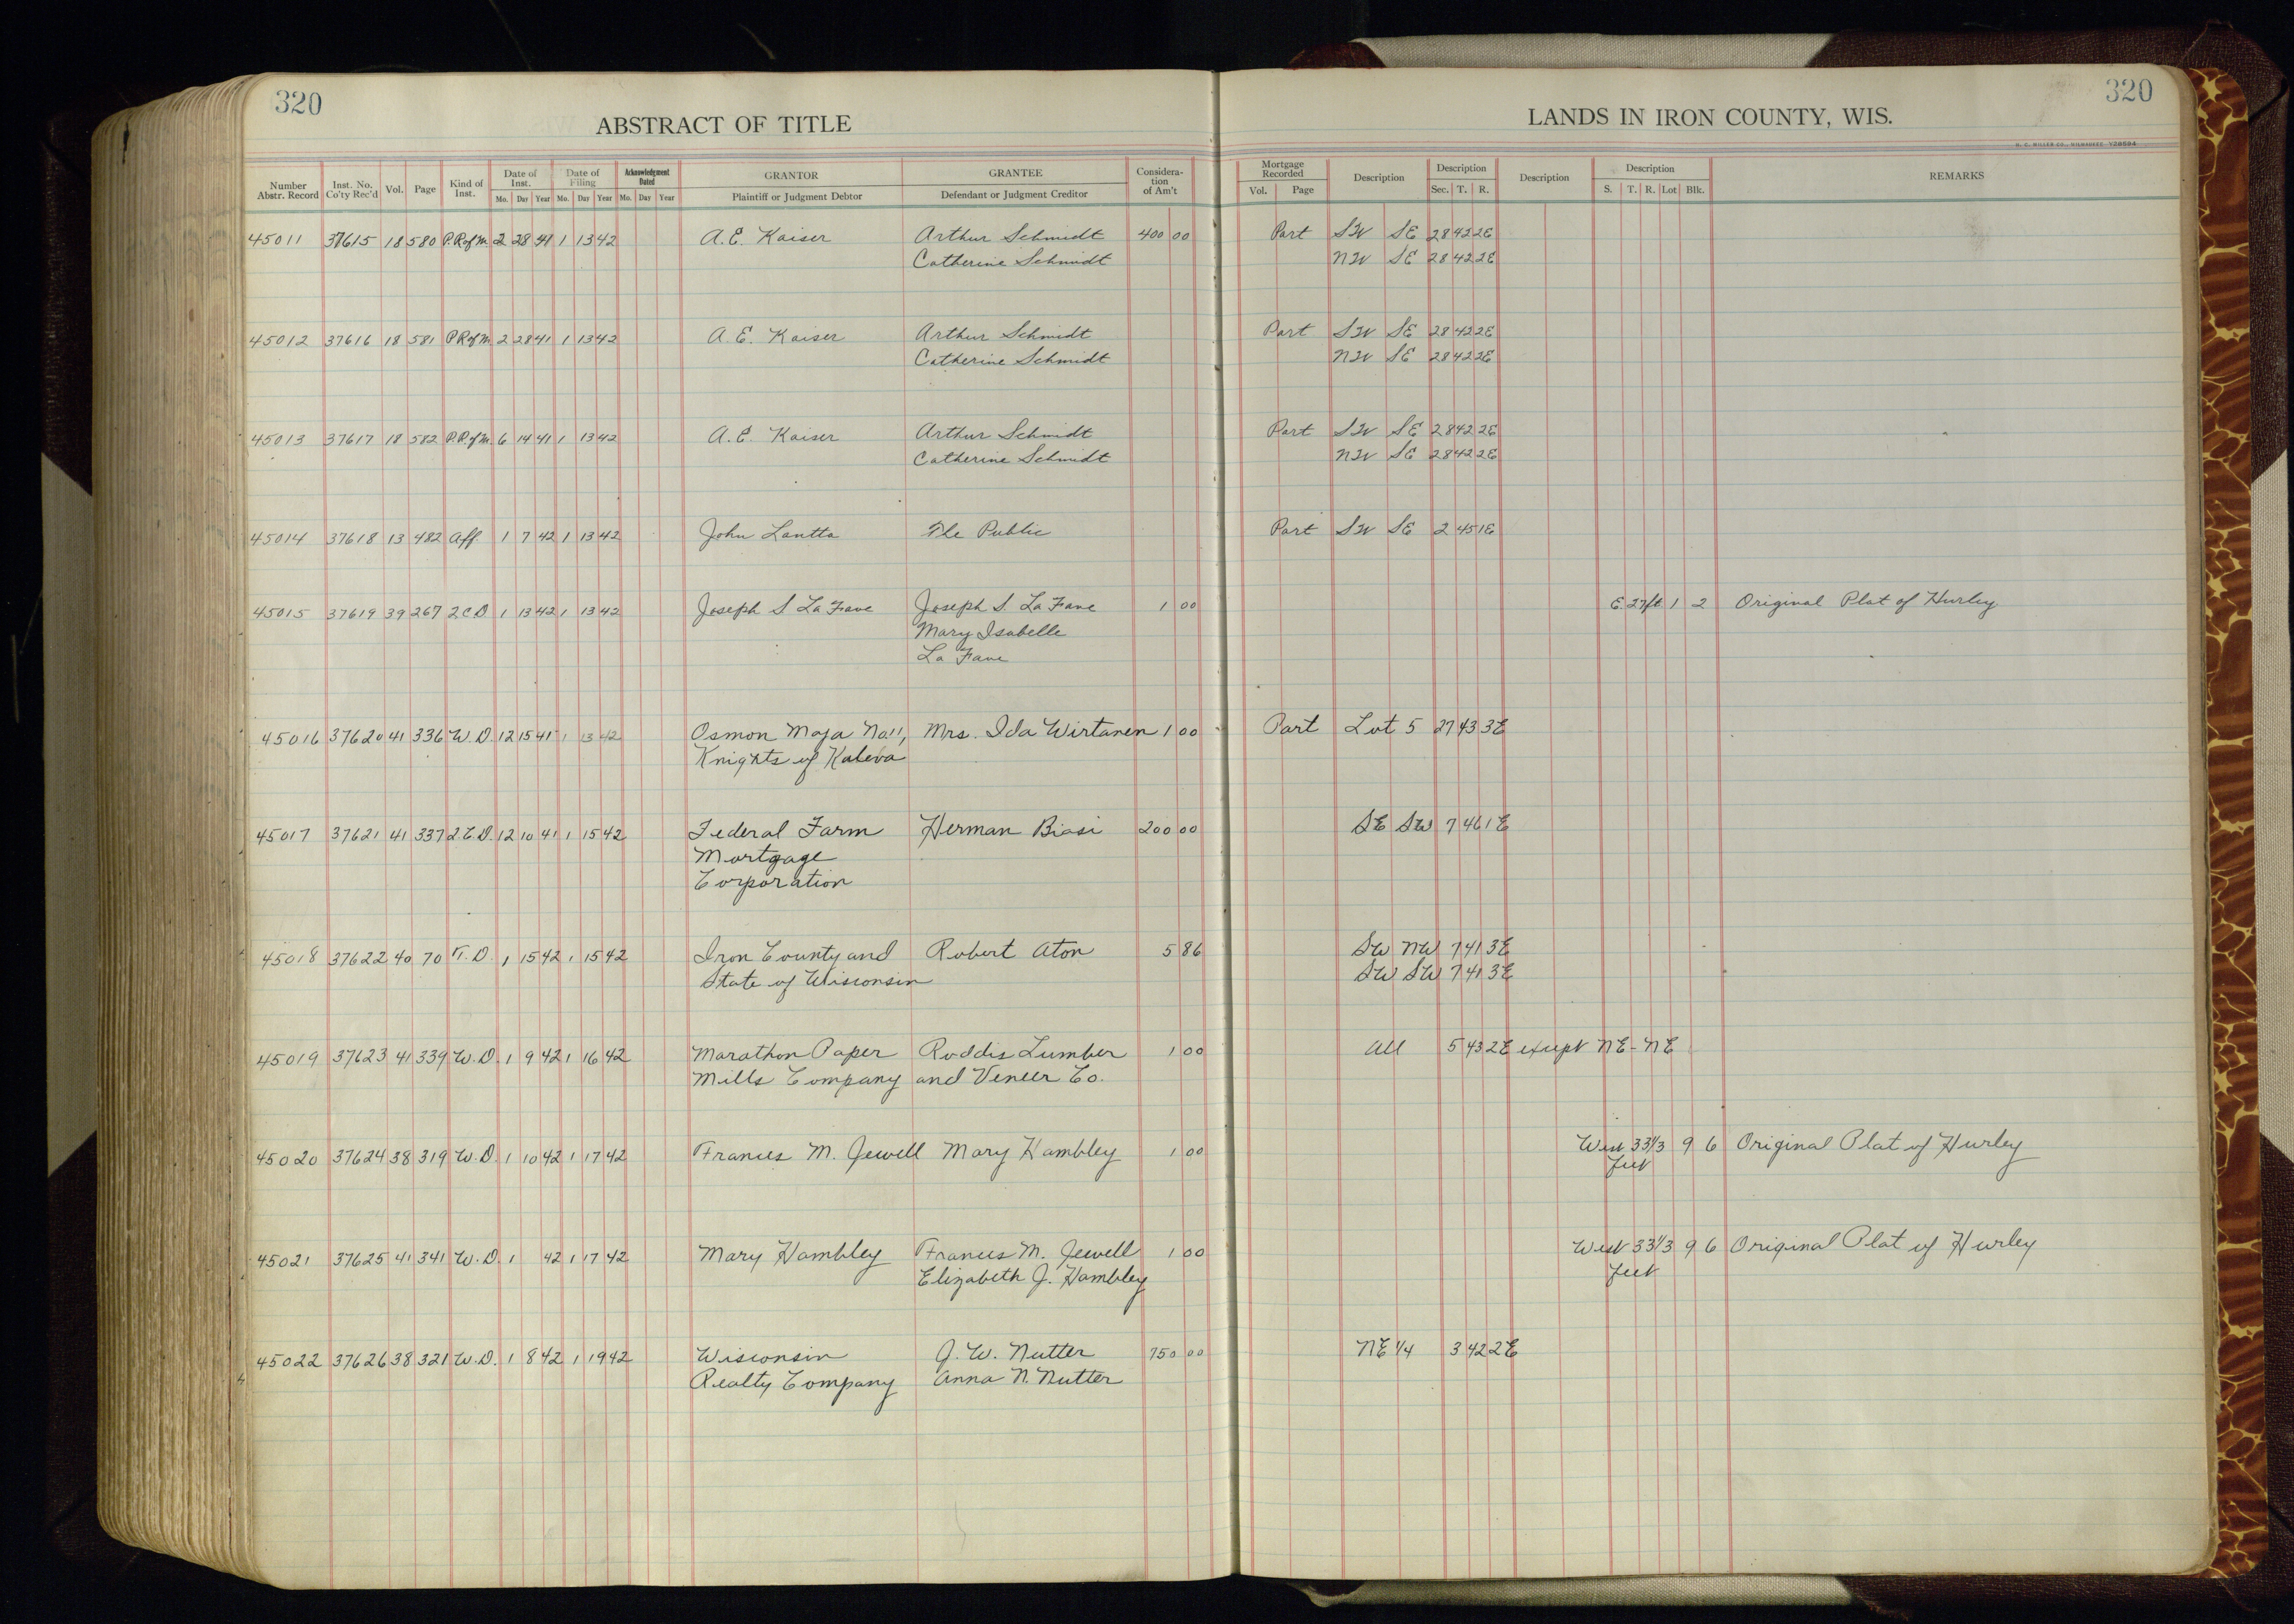 320
ABSTRACT OF TITLE
LANDS IN IRON COUNTY, WIS.
320
Number Abstr. Record Inst. No. Co'ty Rec'd Vol. Page Kind of Inst. Date of Inst. Mo. Day Year Date of Filing Mo. Day Year Acknowledgment Dated Mo. Day Year GRANTOR Plaintiff or Judgment Debtor GRANTEE Defendant or Judgment Creditor Considera-tion of Am't Mortgage Recorded Vol. Page Description Description Sec. T. R. Description Description S. T. R. Lot Blk. REMARKS
45011 37615 18 580 P.R.of M. 2 28 41 1 13 42 A.E. Kaiser Arthur Schmidt 400 00 Part SW SE 28 42 2E
Catherine Schmidt NW SE 28 42 2E
45012 37616 18 581 P.R.of M. 2 28 41 1 13 42 A.E. Kaiser Arthur Schmidt Part SW SE 28 42 2E
Catherine Schmidt NW SE 28 42 2E
45013 37617 18 582 P.R.of M. 6 14 41 1 13 42 A.E. Kaiser Arthur Schmidt Part SW SE 28 42 2E
Catherine Schmidt NW SE 28 42 2E
45014 37618 13 482 Aff 1 7 42 1 13 42 John Lantta The Public Part SW SE 2 45 1E
45015 37619 39 267 2CD 1 13 42 1 13 42 Joseph S La Fave Joseph S. La Fave 1 00 E. 27ft. 1 2 Original Plat of Hurley
Mary Isabelle
La Fave
45016 37620 41 336 W.D. 12 15 41 1 13 42 Osmon Maja No 11, Mrs. Ida Wirtanen 1 00 Part Lot 5 27 43 3E
Knights of Kaleva
45017 37621 41 337 2.C.D. 12 10 41 1 15 42 Federal Farm Herman Biasi 200 00 SE SW 7 46 1E
Mortgage
Corporation
45018 37622 40 70 T.D. 1 15 42 1 15 42 Iron County and Robert Aton 5 86 SW NW 7 41 3E
State of Wisconsin SW SW 7 41 3E
45019 37623 41 339 W.D. 1 9 42 1 16 42 Marathon Paper Roddis Lumber 1 00 All 5 43 2E except NE-NE
Mills Company and Veneer Co.
45020 37624 38 319 W.D. 1 10 42 1 17 42 Frances M. Jewell Mary Hambley 1 00 West 33 1/3 9 6 Original Plat of Hurley
feet
45021 37625 41 341 W.D. 1 42 1 17 42 Mary Hambley Frances M. Jewell 1 00 West 33 1/3 9 6 Original Plat of Hurley
Elizabeth J. Hambley feet
45022 37626 38 321 W.D. 1 8 42 1 19 42 Wisconsin J. W. Nutter 750 00 NE 1/4 3 42 2E
Realty Company Anna N. Nutter